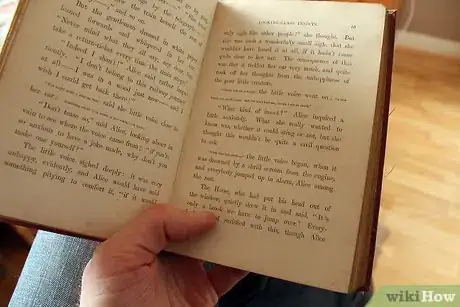 But the gentleman dressed in white paper
leaned forward and whispered in her ear,
"Never mind what they all say, my dear, but
take a return-ticket every time the train stops."
"Indeed I shan't!" Alice said rather impa-
"I don't belong to this railway journey
at all—I was in a wood just now—and I
wish I could get back there!"
said the little voice close to
her ear
"Don't tease so," said Alice, looking about in
vain to see where the voice came from; "if you're
so anxious to have a joke made, why don't you
make one yourself?"
The little voice sighed deeply: it was very
unhappy, evidently, and Alice would have said
something pitying to comfort it, "if it would
LOOKING-GLASS INSECTS.
only sigh like other people!" she thought. But
this was such a wonderfully small sigh, that she
wouldn't have heard it at all, if it hadn't come
quite close to her ear. The consequence of this
was that it tickled her ear very much, and quite
took off her thoughts from the unhappiness of
the poor little creature.
the little voice went on
"What kind of insect?" Alice inquired a
little anxiously. What she really wanted to
know was, whether it could sting or not, but she
thought this wouldn't be quite a civil question
to ask.
the little voice began, when it
was drowned by a shrill scream from the engine,
and everybody jumped up in alarm, Alice among
the rest.
The Horse, who had put his head out of
the window, quietly drew it in and said, "It's
only a brook we have to jump over." Every-
satisfied with this, though Alice
wikiHow